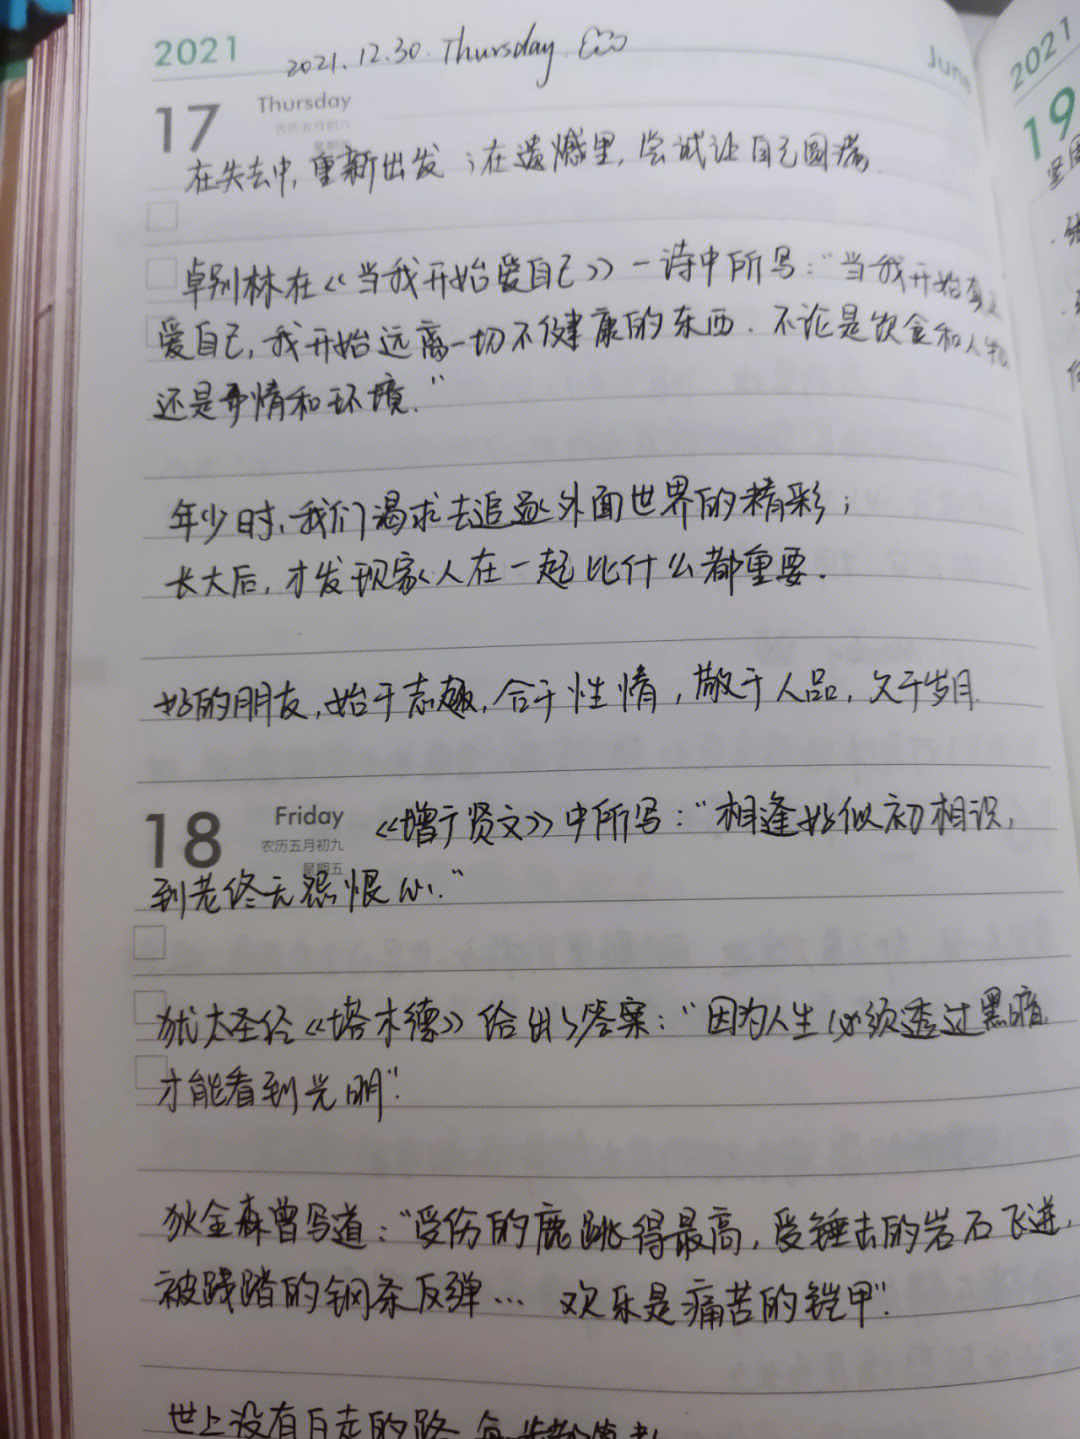 2021
2021.12.30. Thursday.
June
17 Thursday
农历五月初八
在失去中,重新出发;在遗憾里,尝试让自己圆满.
卓别林在《当我开始爱自己》一诗中所写:“当我开始真正
爱自己,我开始远离一切不健康的东西.不论是饮食和人物
还是事情和环境.”
年少时,我们渴求去追逐外面世界的精彩;
长大后,才发现家人在一起比什么都重要.
好的朋友,始于志趣,合于性情,敬于人品,久于岁月.
18 Friday
农历五月初九
星期五
《增广贤文》中所写:“相逢好似初相识,
到老终无怨恨心.”
犹太圣经《塔木德》给出了答案:“因为人生必须透过黑暗,
才能看到光明”.
狄金森曾写道:“受伤的鹿跳得最高,受锤击的岩石飞迸,
被践踏的钢条反弹… 欢乐是痛苦的铠甲”.
世上没有白走的路
2021
19